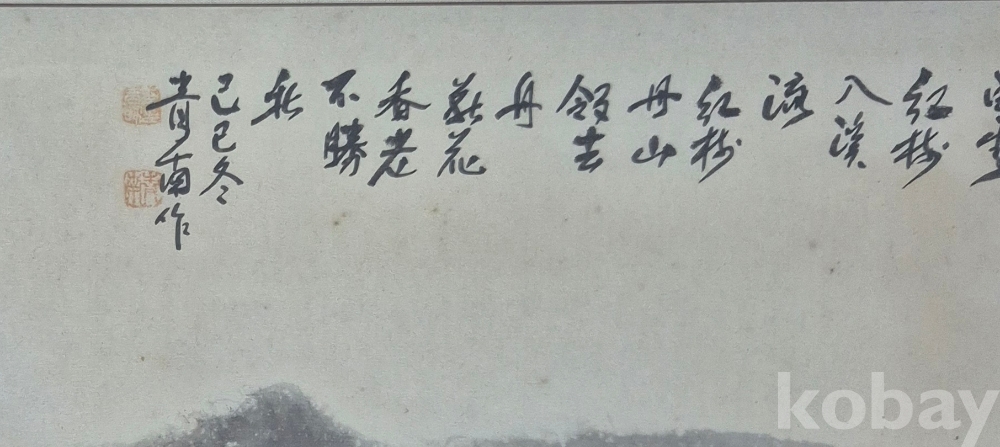 紅樹
入溪
流
紅樹
丹山
去
丹
花
香老
不勝
秋
己巳冬
靑南作
kobay